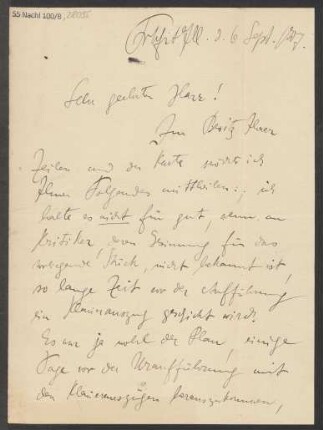 55 Nachl 100/B,
Frkft a/M. d. 6 Sept. 1907.
Sehr geehrter Herr!
Im Besitz Ihrer
Zeilen und der Karte möchte ich
Ihnen Folgendes mittheilen: ich
halte es nicht für gut, wenn an
Kritiker, deren Gesinnung für das
Stück, nicht bekannt ist,
so lange Zeit vor der Aufführung
ein Klavierauszug geschickt wird.
Es war ja wohl der Plan, einige
Tage vor der Uraufführung mit
den Klavierauszügen herauszukommen,